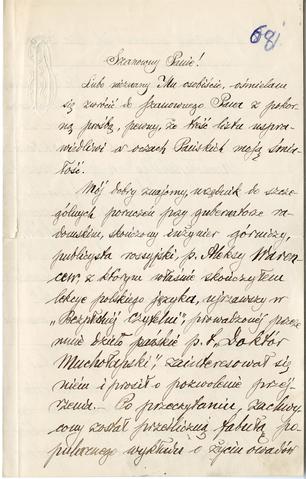 68j
Szanowny Panie!
Lubo nieznany Mu osobiście, ośmielam
się zwrócić do Szanownego Pana z pokor-
ną prośbą, pewny, że treść listu uspra-
wiedliwi w oczach Pańskich moją śmia-
łość.
Mój dobry znajomy, urzędnik do szcze-
gólnych poruczeń przy gubernatorze ra-
domskim, skończony inżynier górniczy,
publicysta rosyjski, p. Aleksy Waren-
cew, z którym właśnie skończyłem
lekcję polskiego języka, ujrzawszy w
„Bezpłatnej Czytelni", prowadzonej przeze-
mnie dzieło pańskie p. t. „Doktor
Muchołapski", zainteresował się
niem i prosił o pozwolenie przej-
rzenia. — Po przeczytaniu, zachwy-
cony został prześliczną fabułą po-
pularnego wykładu o życiu owadów